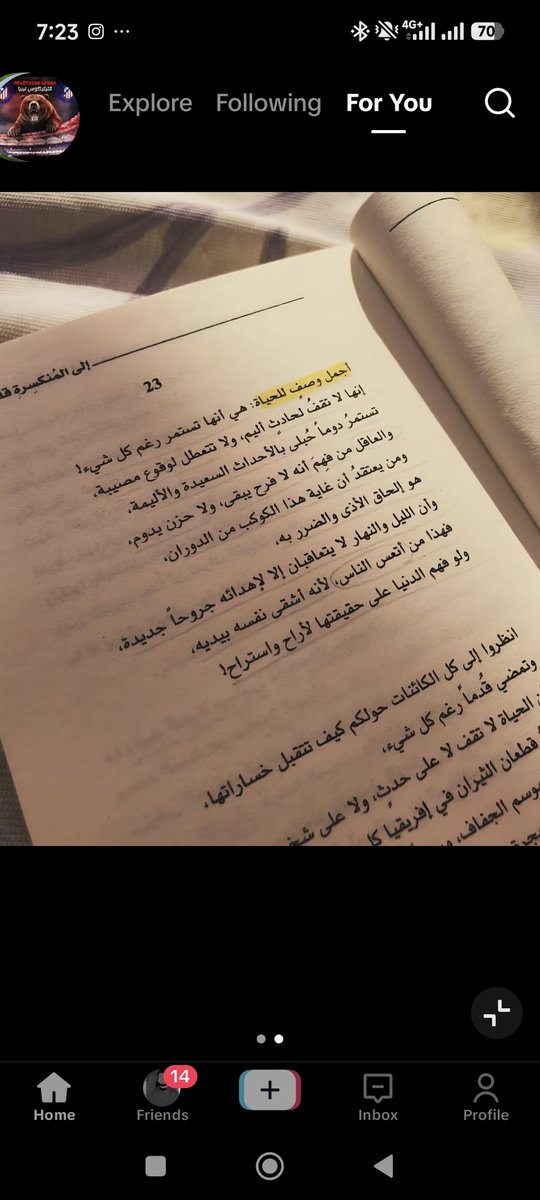 7:23
4G+
70
Explore
Following
For You
إلى المُنكسِرةِ
23
أجمل وصفٍ للحياة: هي أنها تستمر رغم كل شيء!
إنها لا تقفُ لحادثٍ أليم، ولا تتعطل لوقوع مصيبة،
تستمرُ دوماً حُبلى بالأحداث السعيدة والأليمة،
والعاقل من فهِمَ أنه لا فرح يبقى، ولا حزن يدوم،
ومن يعتقدُ أن غاية هذا الكوكب من الدوران،
هو إلحاق الأذى والضرر به،
وأن الليل والنهار لا يتعاقبان إلا لإهدائه جروحاً جديدة،
فهذا من أتعس الناس، لأنه أشقى نفسه بيديه،
ولو فهم الدنيا على حقيقتها لأراح واستراح!
انظروا إلى كل الكائنات حولكم كيف تتقبل خساراتها،
وتمضي قُدماً رغم كل شيء،
الحياة لا تقف لا على حدثٍ، ولا على
قطعان الثيران في إفريقيا
موسم الجفاف،
14
Home
Friends
Inbox
Profile